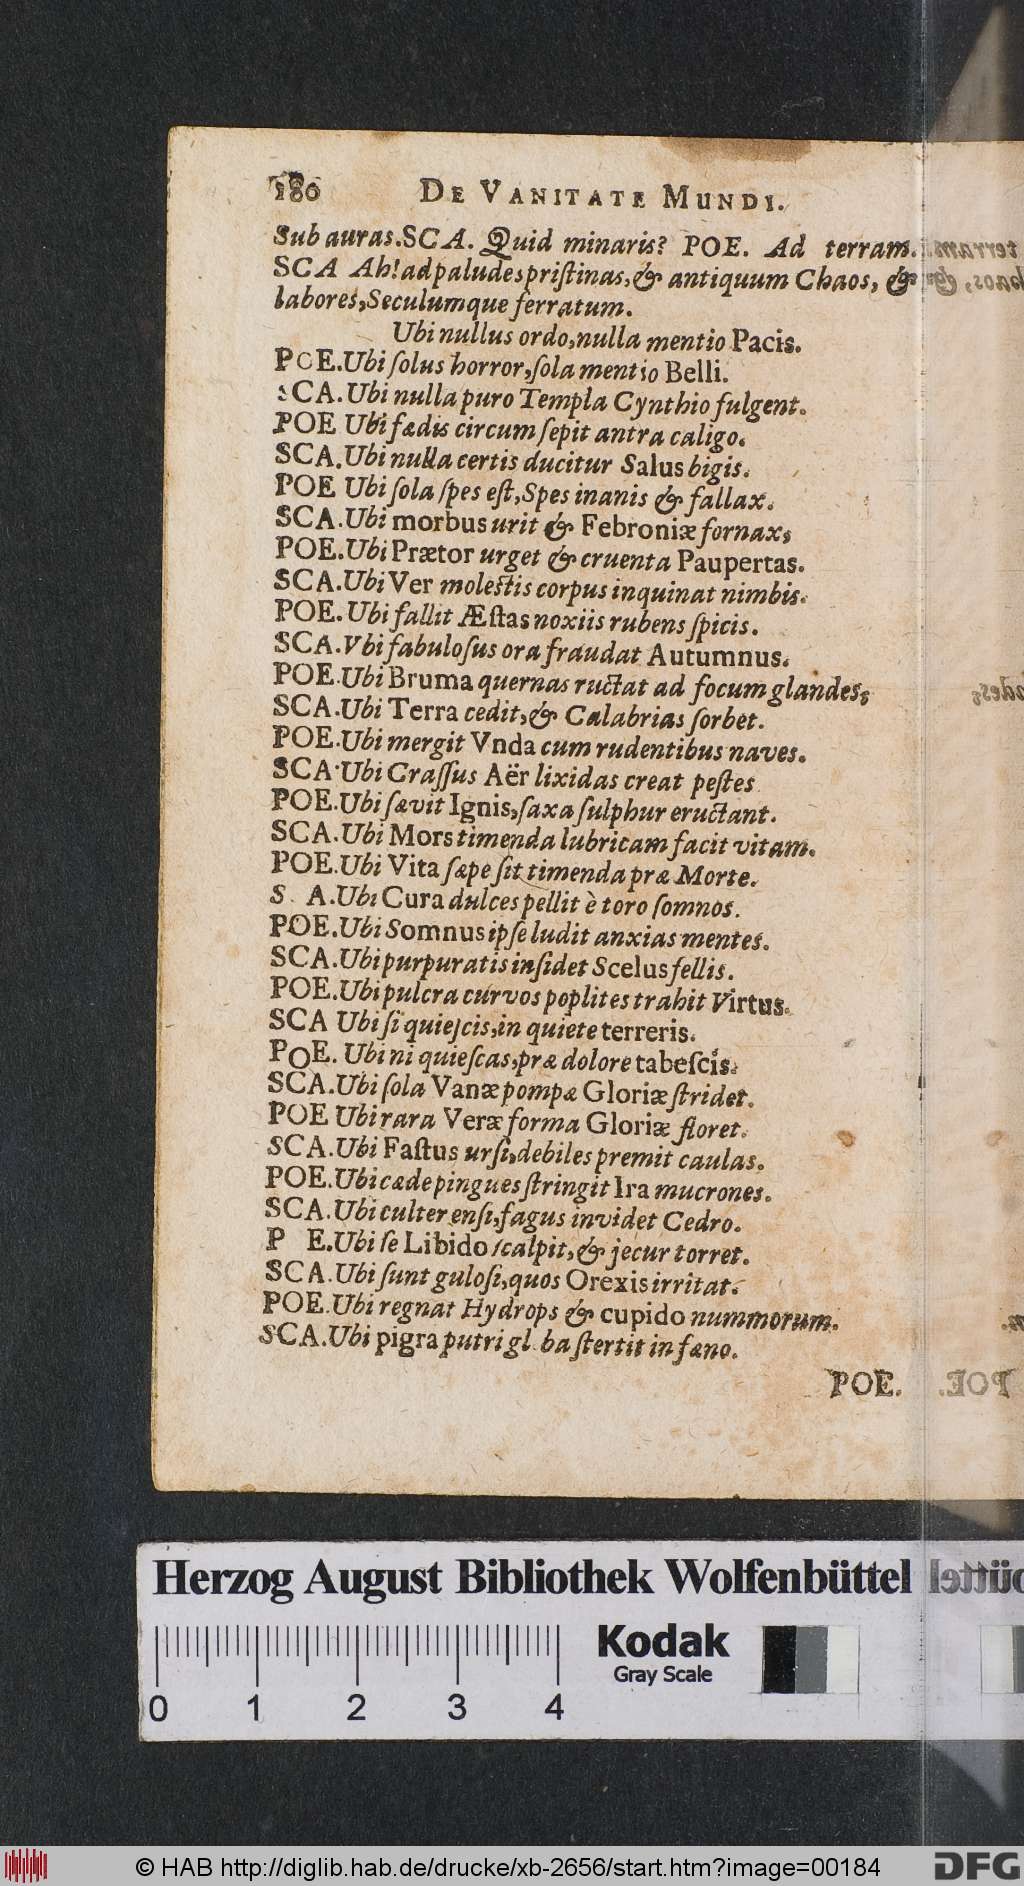 180 DE VANITATE MUNDI.
Sub auras. SCA. Quid minaris? POE. Ad terram.
SCA Ah! ad paludes priſtinas, & antiquum Chaos, &
labores, Seculumque ferratum.
Ubi nullus ordo, nulla mentio Pacis.
POE. Ubi ſolus horror, ſola mentio Belli.
SCA. Ubi nulla puro Templa Cynthio fulgent.
POE Ubi fædis circum ſepit antra caligo.
SCA. Ubi nulla certis ducitur Salus bigis.
POE Ubi ſola ſpes eſt, Spes inanis & fallax.
SCA. Ubi morbus urit & Febroniæ fornax;
POE. Ubi Prætor urget & cruenta Paupertas.
SCA. Ubi Ver moleſtis corpus inquinat nimbis.
POE. Ubi fallit Æſtas noxiis rubens ſpicis.
SCA. Vbi fabuloſus ora fraudat Autumnus.
POE. Ubi Bruma quernas ructat ad focum glandes;
SCA. Ubi Terra cedit, & Calabrias ſorbet.
POE. Ubi mergit Vnda cum rudentibus naves.
SCA. Ubi Craſſus Aër lixidas creat peſtes
POE. Ubi ſævit Ignis, ſaxa ſulphur eructant.
SCA. Ubi Mors timenda lubricam facit vitam.
POE. Ubi Vita ſæpe ſit timenda præ Morte.
S. A. Ubi Cura dulces pellit è toro ſomnos.
POE. Ubi Somnus ipſe ludit anxias mentes.
SCA. Ubi purpuratis inſidet Scelus fellis.
POE. Ubi pulcra curvos poplites trahit Virtus.
SCA Ubi ſi quieſcis, in quiete terreris.
POE. Ubi ni quieſcas, præ dolore tabeſcis.
SCA. Ubi ſola Vanæ pompæ Gloriæ ſtridet.
POE Ubi rara Veræ forma Gloriæ floret.
SCA. Ubi Faſtus urſi, debiles premit caulas.
POE. Ubi cæde pingues ſtringit Ira mucrones.
SCA. Ubi culter enſi, fagus invidet Cedro.
P E. Ubi ſe Libido ſcalpit, & jecur torret.
SCA. Ubi ſunt guloſi, quos Orexis irritat.
POE. Ubi regnat Hydrops & cupido nummorum.
SCA. Ubi pigra putri gl ba ſtertit in fæno.
POE.
Herzog August Bibliothek Wolfenbüttel
Kodak
Gray Scale
0 1 2 3 4
© HAB http://diglib.hab.de/drucke/xb-2656/start.htm?image=00184
DFG